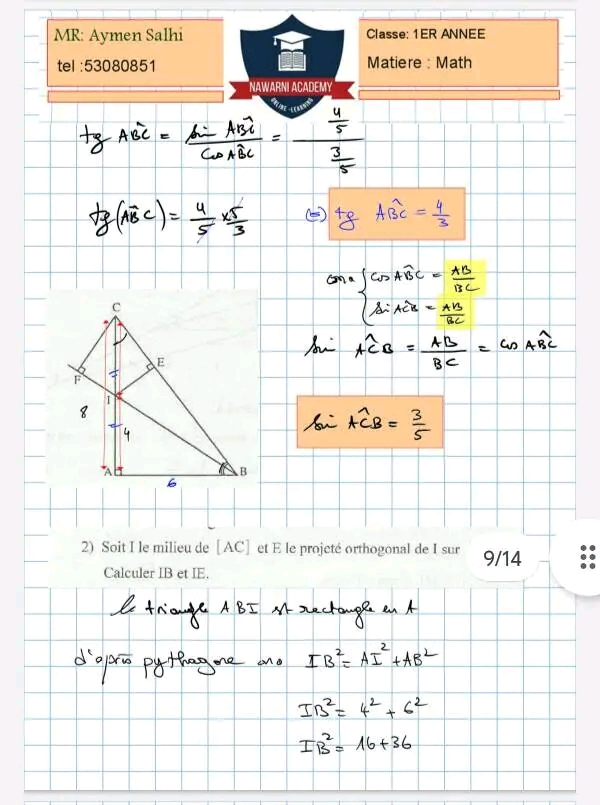 MR: Aymen Salhi
tel :53080851
NAWARNI ACADEMY
ONLINE - LEARNING
Classe: 1ER ANNEE
Matiere : Math
tg AB̂C = sin AB̂C / cos AB̂C = 4/5 / 3/5
tg(AB̂C) = 4/5 × 5/3 (=) tg AB̂C = 4/3
on a { cos AB̂C = AB/BC
sin AĈB = AB/BC
sin AĈB = AB/BC = cos AB̂C
sin AĈB = 3/5
C
E
F
I
8
4
A
B
6
2) Soit I le milieu de [AC] et E le projeté orthogonal de I sur
Calculer IB et IE.
9/14
le triangle ABI est rectangle en A
d'après pythagore on a IB² = AI² + AB²
IB² = 4² + 6²
IB² = 16 + 36